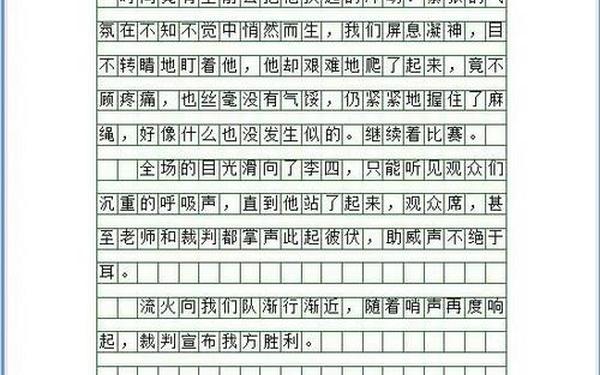 氛在不知不觉中悄然而生，我们屏息凝神，目
不转睛地盯着他，他却艰难地爬了起来，竟不
顾疼痛，也丝毫没有气馁，仍紧紧地握住了麻
绳，好像什么也没发生似的。继续着比赛。
全场的目光滑向了李四，只能听见观众们
沉重的呼吸声，直到他站了起来，观众席，甚
至老师和裁判都掌声此起彼伏，助威声不绝于
耳。
流火向我们队渐行渐近，随着哨声再度响
起，裁判宣布我方胜利。